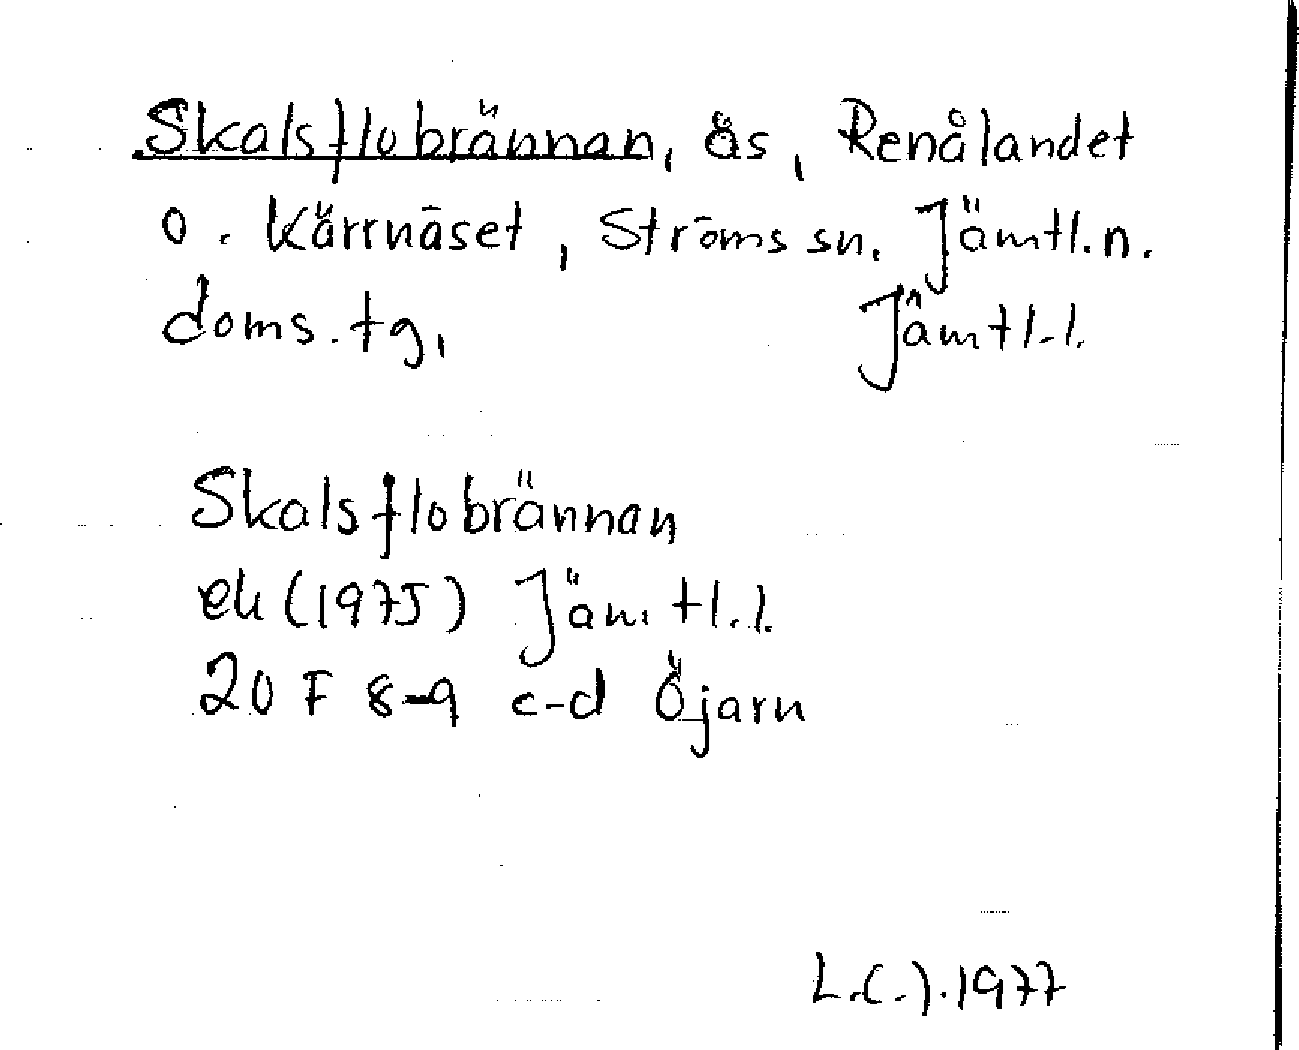 Skalsflobrännan, ås, Renålandet
o. Kärrnäset, Ströms sn. Jämtl.n.
doms.tg, Jämtl.l.
Skalsflobrännan
ek (1975) Jämtl.l.
20 F 8-9 c-d Öjarn
L.C.J.1977